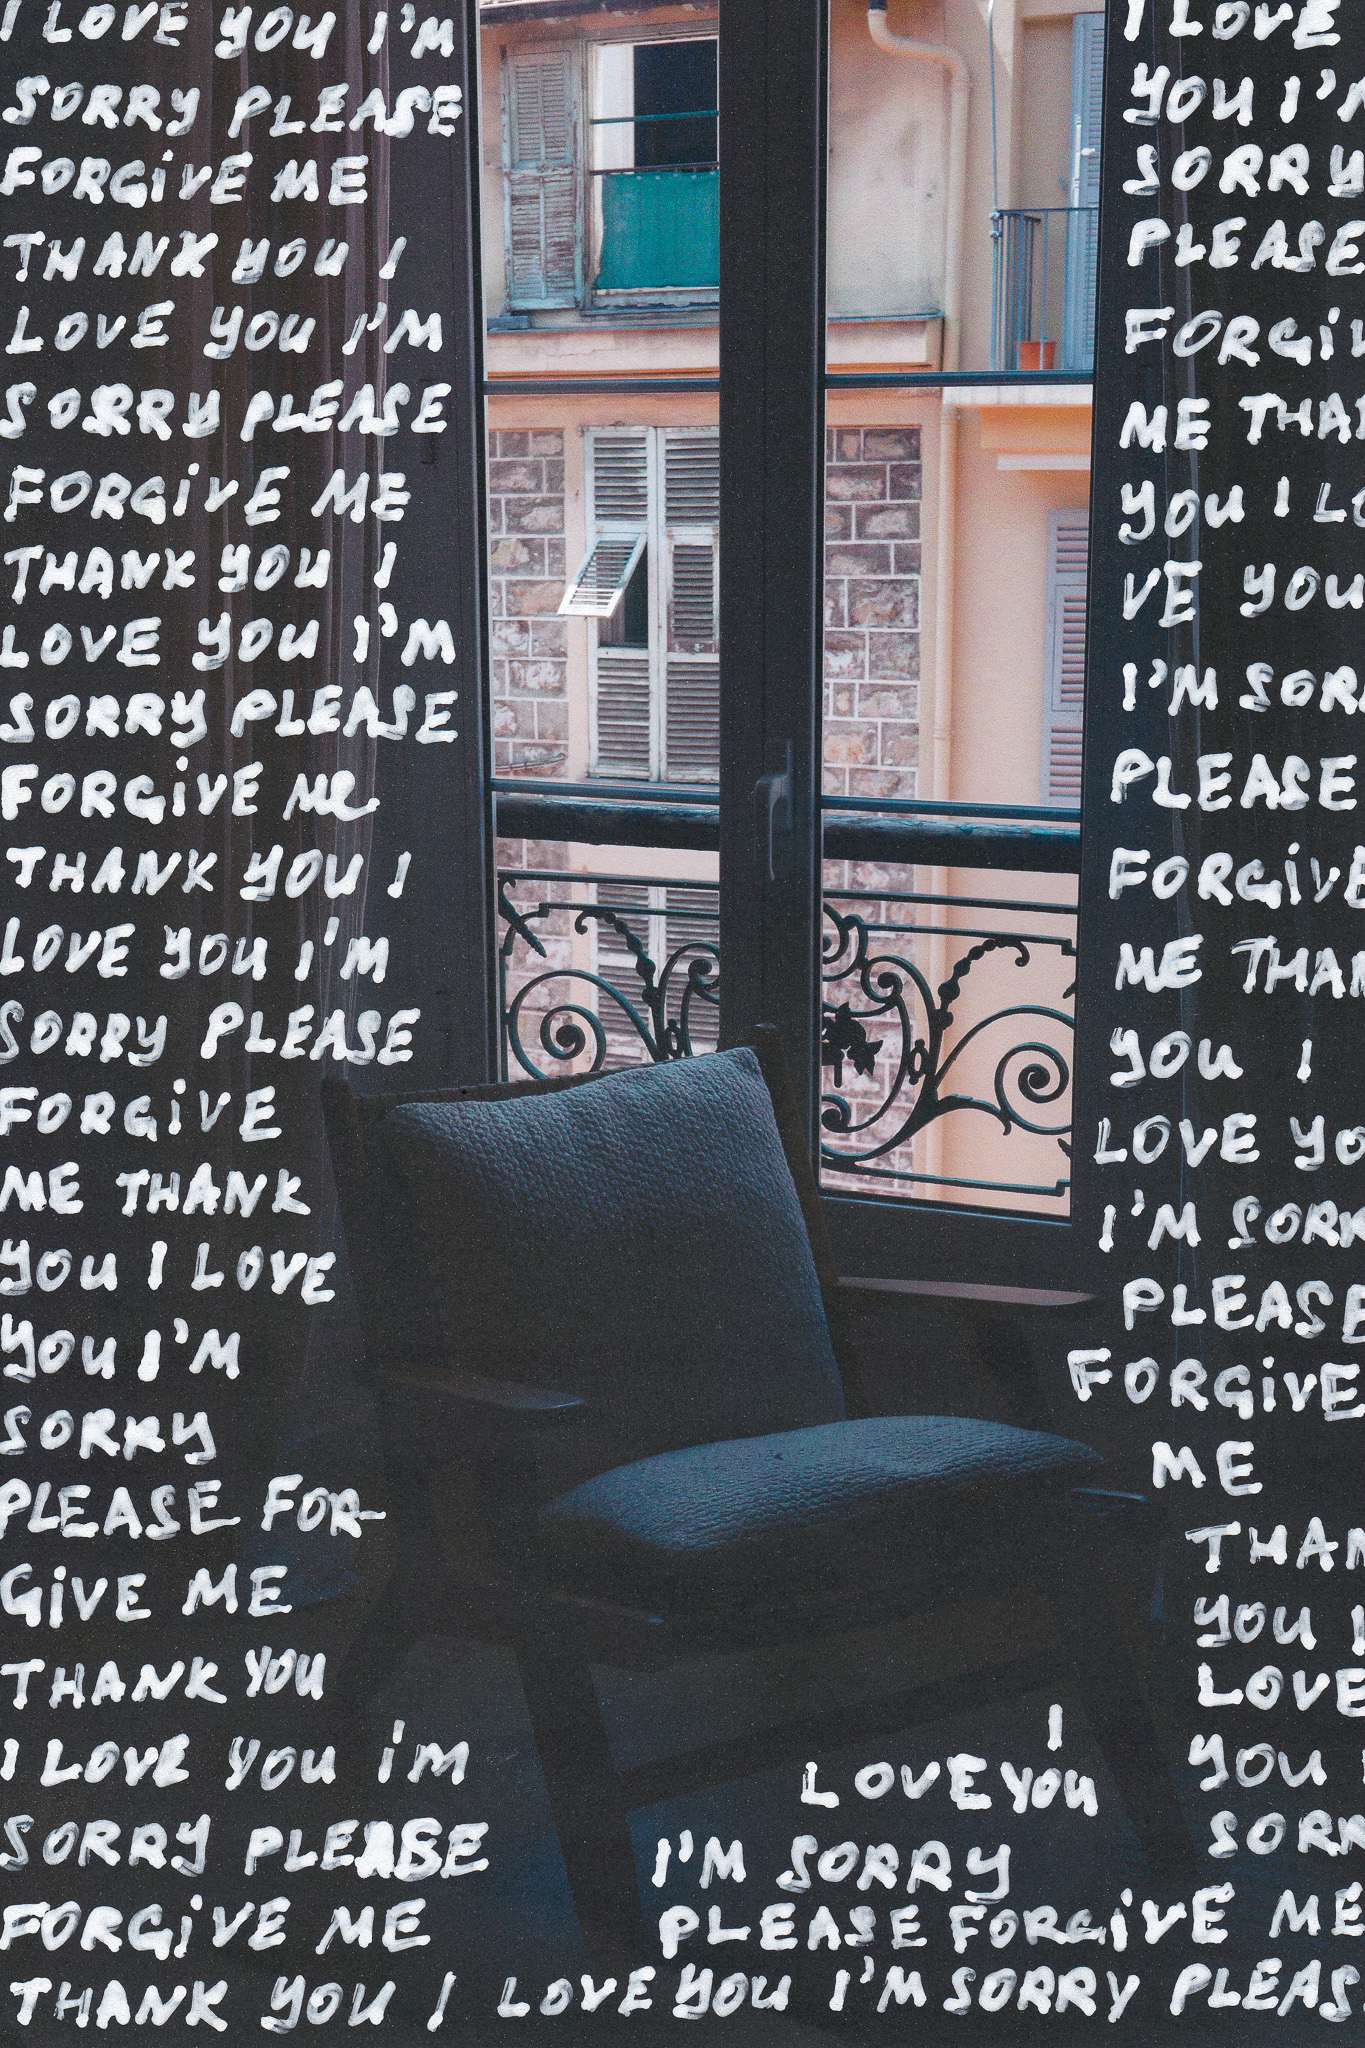 I LOVE YOU I'M
SORRY PLEASE
FORGiVE ME
THANK YOU I
LOVE YOU I'M
SORRY PLEASE
FORGiVE ME
THANK YOU I
LOVE YOU I'M
SORRY PLEASE
FORGiVE ME
THANK YOU I
LOVE YOU I'M
SORRY PLEASE
FORGiVE
ME THANK
YOU I LOVE
YOU I'M
SORRY
PLEASE FOR-
GiVE ME
THANK YOU
I LOVE YOU i'm
SORRY PLEASE
FORGiVE ME
THANK YOU I LOVE YOU I'M SORRY PLEAS
I
LOVE YOU
I'M SORRY
PLEASE FORGiVE ME
I LOVE
YOU I'M
SORRY
PLEASE
FORGiV
ME THA
YOU I LO
VE YOU
I'M SOR
PLEASE
FORGiVE
ME THAN
YOU I
LOVE YO
I'M SORR
PLEASE
FORGiVE
ME
THAN
YOU I
LOVE
YOU I
SORR